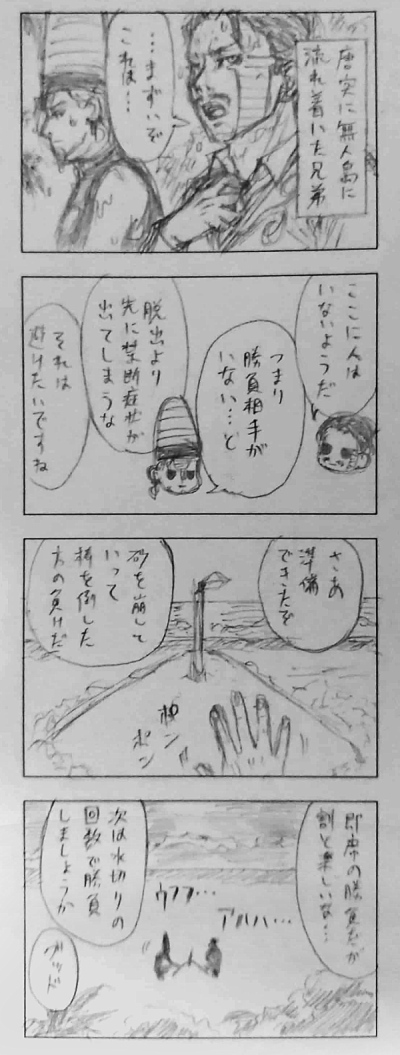 唐突に無人島に
流れ着いた兄弟
…まずいぞ
これは…
ここに人は
いないようだ
つまり
勝負相手が
いない…と
脱出より
先に禁断症状が
出てしまうな
それは
避けたいですね
さあ
準備
できたぞ
砂を崩して
いって
棒を倒した
方の負けだ
ポン
ポン
即席の勝負だが
割と楽しいな…
アハハ…
ウフフ…
次は水切りの
回数で勝負
しましょうか
グッド